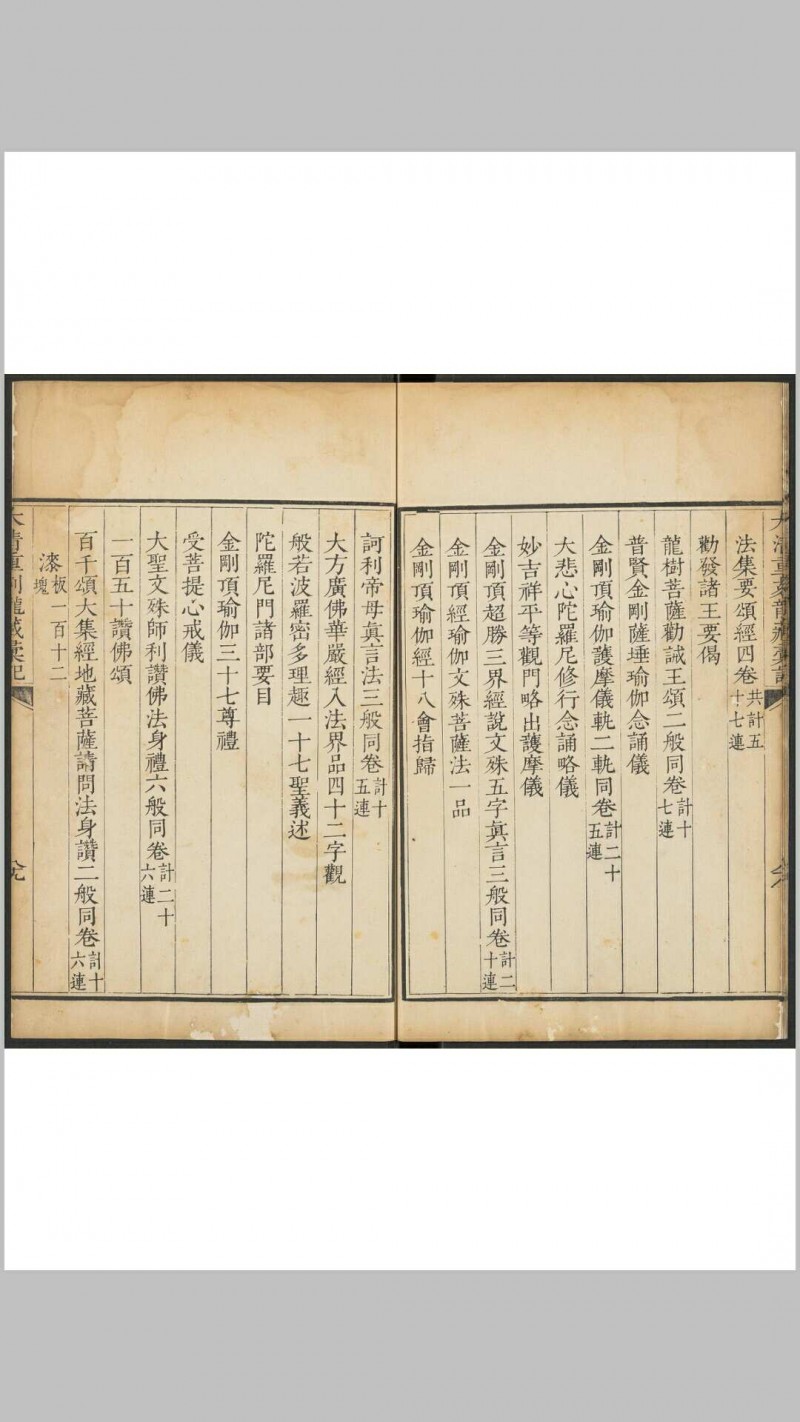 法集要頌經四卷共計五十七連
勸發諸王要偈
龍樹菩薩勸誡王頌二般同卷計十七連
普賢金剛薩埵瑜伽念誦儀
金剛頂瑜伽護摩儀軌二軌同卷計二十五連
大悲心陀羅尼修行念誦略儀
妙吉祥平等觀門略出護摩儀
金剛頂超勝三界經說文殊五字眞言三般同卷計二十連
金剛頂經瑜伽文殊菩薩法一品
金剛頂瑜伽經十八會指歸
訶利帝母眞言法三般同卷計十五連
大方廣佛華嚴經入法界品四十二字觀
般若波羅密多理趣一十七聖義述
陀羅尼門諸部要目
金剛頂瑜伽三十七尊禮
受菩提心戒儀
大聖文殊師利讚佛法身禮六般同卷計二十六連
一百五十讚佛頌
百千頌大集經地藏菩薩請問法身讚二般同卷計十六連
漆板一百十二塊